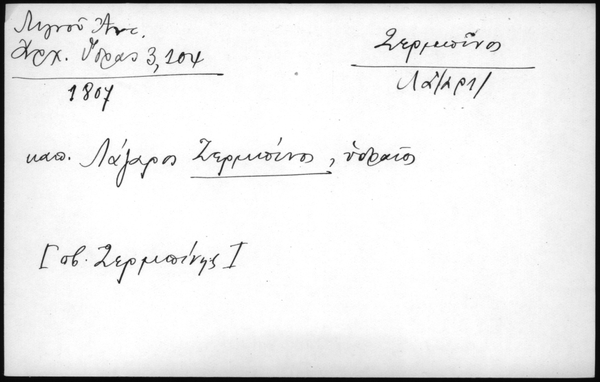 Λιγνοῦ Ἀντ.
Ἀρχ. Ὕδρας 3,104
1807
Ζερμπῖνος
Λάζαρ/
καπ. Λάζαρος Ζερμπῖνος, ὑδραῖος
[πβ. Ζερμπίνης]